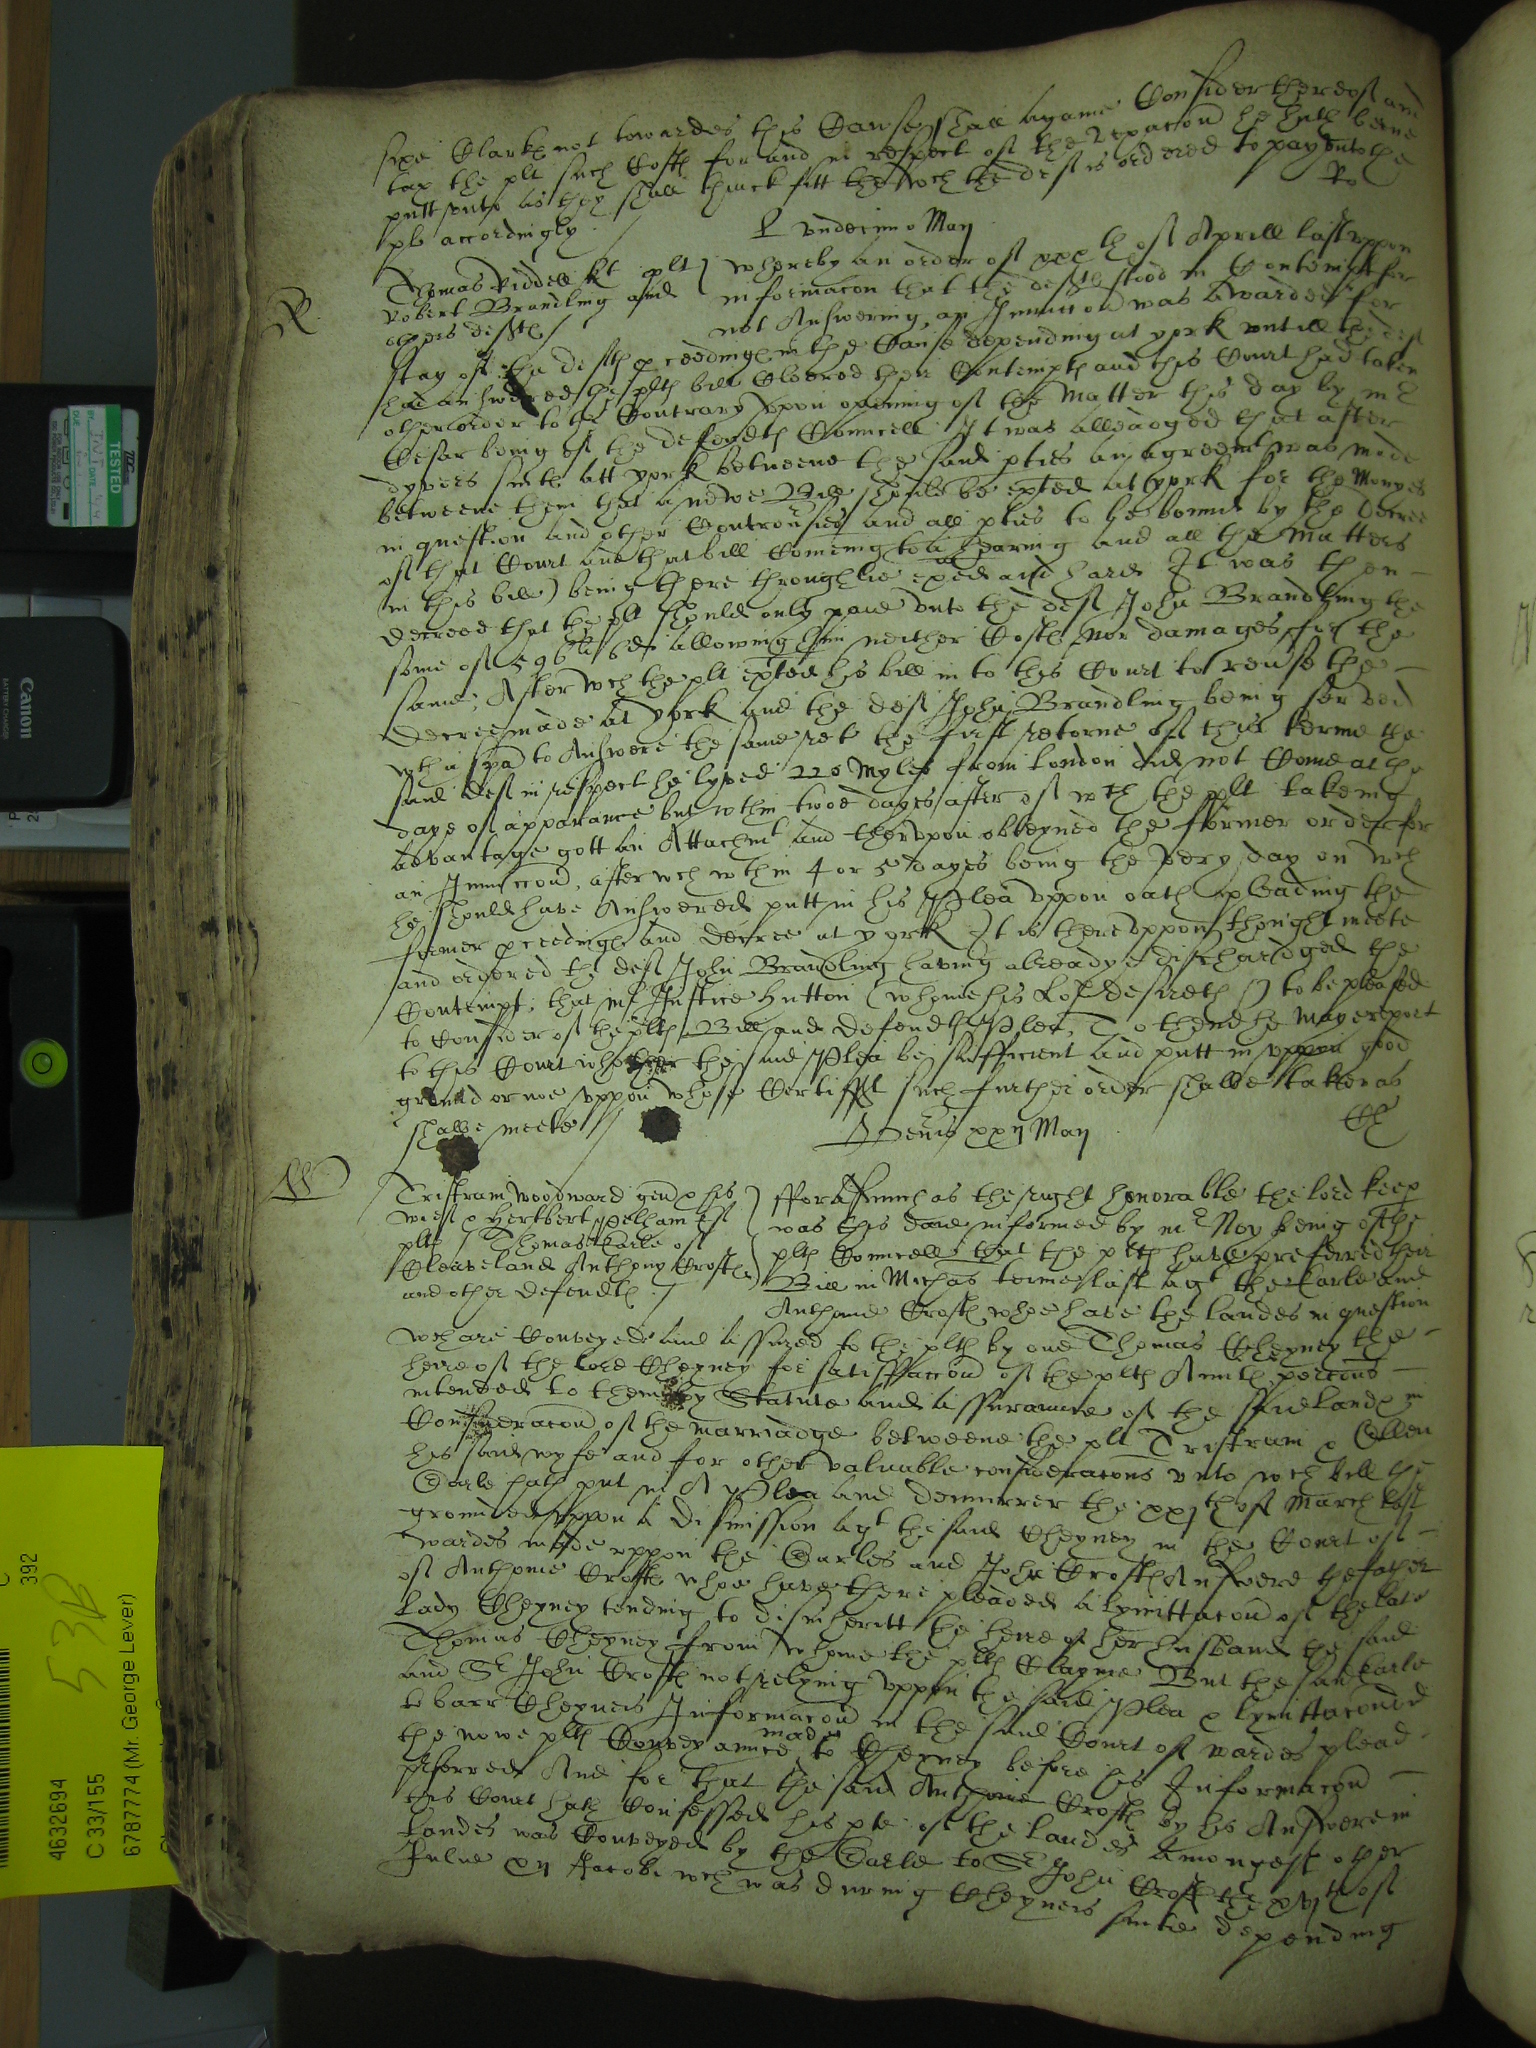 sixe Clarks not towardes this Cause shall againe Consider thereof and
tax the plt such Costs for and in respect of the vexacon he hath beene
putt vnto as they shall thinck fitt the wch the deft is ordered to pay vnto the
plt accordingly. Ro
undecimo Maij
R
Thomas Riddell kt plt
Robert Brandling and
others defts
Whereby an order of xxxth of Aprill last vppon
informacon that the defts stood in Contempt for
not Answering, an Iniunccon was awarded for
stay of the defts proceedings in the Cause depending at york vntill the deft
had answered the plts bill Cleered their Contempts and this Court had taken
other order to the Contrary vpon opening of the Matter this day by mr
Cesar being of the defendts Councell It was alleadged that after
dyvers suits att york betweene the said pties an agreemt was made
betweene them that a newe Bill should be exted at york for the Monyes
in question and other Controusies and all pties to be bound by the decree
of that Court and that bill Comeing to a hearing and all the Matters
in this bill) being there throughlie exed and hard It was then
decreed that the plt should only paie vnto the deft John Brandling the
some of 596li 6d allowing him neither Costs nor damages for the
same, After wch the plt exted his bill in to this Court to reuse the
decree made at york and the deft John Brandling being served
wth a spa to Answere the same ret the first retorne of this terme the
said deft in respect he lyved 220 Myles from london did not Come at the
daye of apparance but wthin twoe dayes after of wch the plt takeing
advantage gott an Attachmt and thervpon obteyned the fformer order for
an Iniunccon, after wch wthin 4 or 5 dayes being the very day on wch
he should have Answered putt in his Plea vppon oath pleading the
former proceedings and decree at york It is therevppon thought meete
and ordered the deft John Brandling having already discharged the
Contempt, that mr Justice Hutton (whome his Lop desireth) to be pleased
to Consider of the plts Bill and defendts Plea, To thend he maye report
to this Court whether the said Plea be sufficient and putt in vppon good
ground or noe vppon whose Certifft such further order shalbe taken as
shalbe meete
Veneris xxij Maij
W
Tristram Woodward gen & his
wief & Herbert Pelham Esq
plts Thomas Earle of
Cleaveland Anthony Crofts
and other defendts
fforasmuch as the right honorable the lord keep
was this daie informed by mr Noy being of the
plts Councell that the plts have preferred their
Bill in Michas terme last agt the Earle and
Anthonie Crofts whoe have the landes in question
wch are Conveyed and assured to the plts by one Thomas Cheyney the
heire of the lord Cheyney for satisffaccon of the plts Aunts porcons
intended to them by Statute and assurance of the said lands in
Consideracon of the marriadge betweene the plt Tristram & Ellen
his said wyfe and for other valuable consideracons vnto wch bill the
Earle hath put in A Plea and demurrer the xxjth of March last
grounded vppon a dismission agt the said Cheyney in the Court of
wardes made vppon the Earles and John Crofts Answere the father
of Anthonie Crofts whoe have there pleaded a lymittacon of the late
lady Cheyney tending to disinheritt the heire of her husband the said
Thomas Cheyney from whome the plts Clayme But the said Earle
and Sr John Crofts not relying vppon the said Plea & lymittacon
to barr Cheyneis Informacon in the said Court of wardes plead
the nowe plts Conveyance made to Cheyney before his Informacon
pferred And for that the said Anthonie Crofts by his Answere in
this Court hath Confessed his pte of the landes amongest other
landes was Conveyed by the Earle to Sr John Crofts the xvjth of
Julie xij Jacobi wch was during Cheyneis suite depending
TESTED
Canon
BATTERY CHARGER
392
53B
4632694
C 33/155
6787774 (Mr. George Lever)